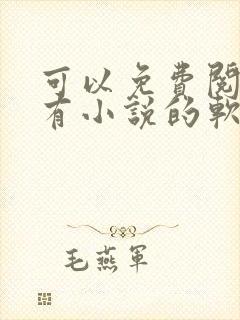 可以免費閱
有小說的軟
毛燕軍